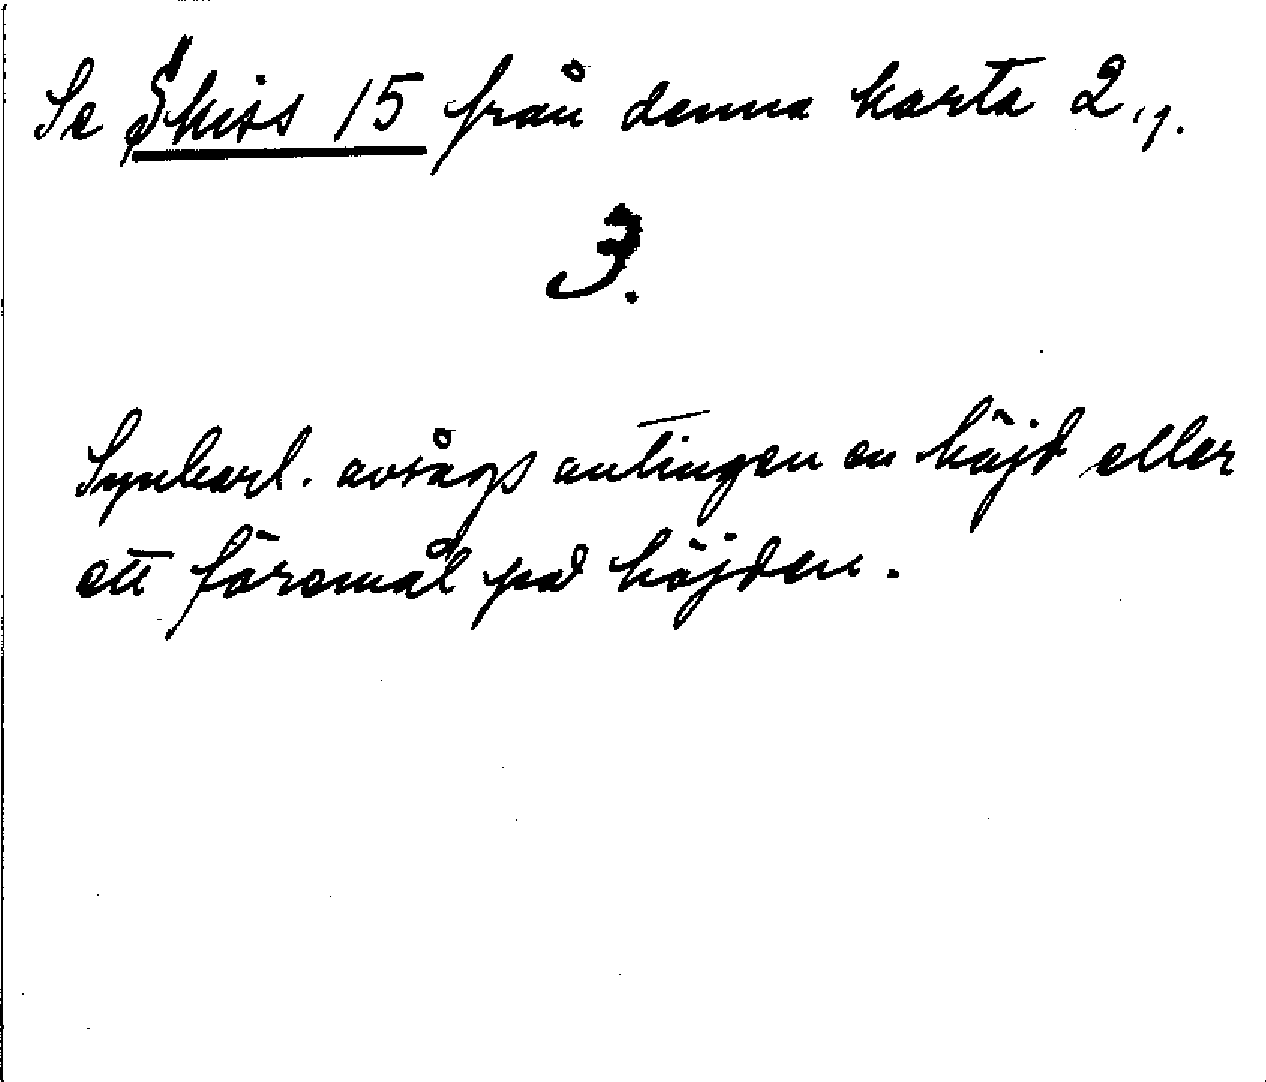 Se Skiss 15 från denna karta 2,1.
3.
Synbarl. avsågs antingen en höjd eller
ett föremål på höjden.